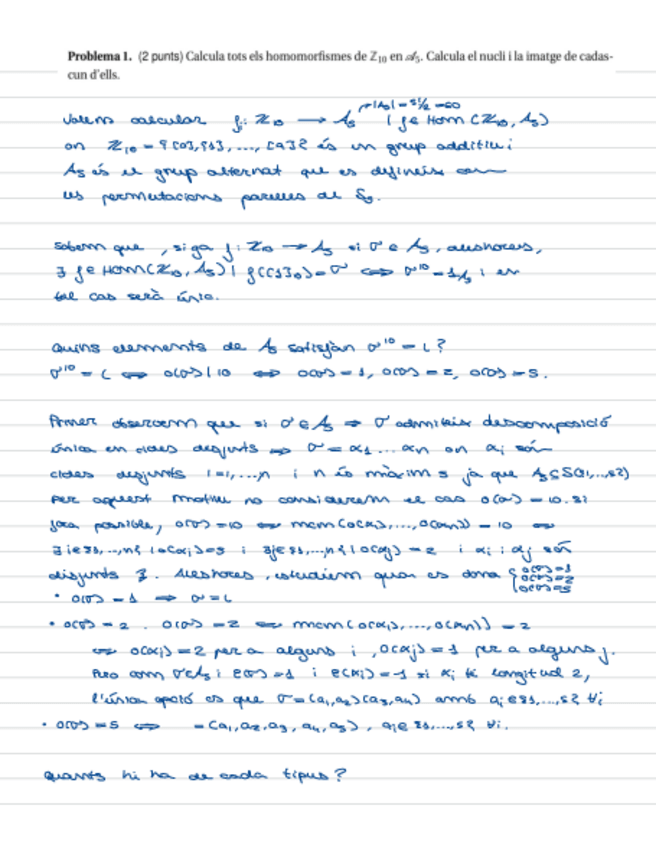 Problema 1. (2 punts) Calcula tots els homomorfismes de ℤ₁₀ en 𝒜₅. Calcula el nucli i la imatge de cadas-
cun d'ells.
|A₅| = 5!/2 = 60
Volem calcular f: ℤ₁₀ → A₅ (f ∈ Hom(ℤ₁₀, A₅)
on ℤ₁₀ = {[0],[1], ..., [9]} és un grup additiu i
A₅ és el grup alternat que es defineix com
les permutacions parelles de S₅.
Sabem que, siga f: ℤ₁₀ → A₅ si σ ∈ A₅, aleshores,
∃ f ∈ Hom(ℤ₁₀, A₅) | f([1]₁₀) = σ ⟺ σ¹⁰ = 1_A₅ i en
tal cas serà únic.
Quins elements de A₅ satisfan σ¹⁰ = ι?
σ¹⁰ = ι ⟺ o(σ) | 10 ⟺ o(σ) = 1, o(σ) = 2, o(σ) = 5.
Primer observem que si σ ∈ A₅ ⇒ σ admiteix descomposició
única en cicles disjunts ⇒ σ = α₁ ... αn on αi són
cicles disjunts i=1,...,n i n és màxim 5 ja que A₅ ≤ S({1,...,5})
Per aquest motiu no considerem el cas o(σ) = 10. Si
fora possible, o(σ) = 10 ⟺ mcm(o(α₁), ..., o(αn)) = 10 ⟺
∃ i ∈ {1,..,n} | o(αi) = 5 i ∃ j ∈ {1,..,n} | o(αj) = 2 i αi i αj són
disjunts }. Aleshores, estudiem quan es dona { o(σ)=1
o(σ)=2
o(σ)=5
• o(σ) = 1 ⇒ σ = ι
• o(σ) = 2. o(σ) = 2 ⟺ mcm(o(α₁), ..., o(αn)) = 2
⟺ o(αi) = 2 per a alguns i, o(αj) = 1 per a alguns j.
Pero com σ ∈ A₅ i ε(σ) = 1 i ε(αi) = -1 si αi té longitud 2,
l'única opció es que σ = (a₁,a₂)(a₃,a₄) amb ai ∈ {1,...,5} ∀i
• o(σ) = 5 ⟺ = (a₁, a₂, a₃, a₄, a₅), ai ∈ {1,...,5} ∀i.
Quants hi ha de cada tipus?